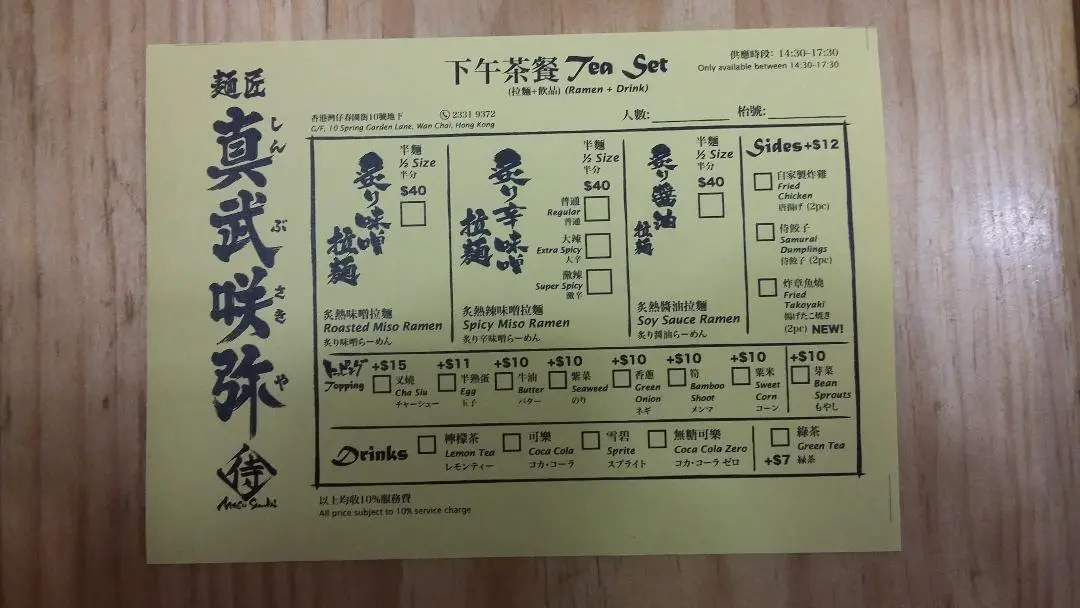 麺匠
真武咲弥
しんぶさきや
侍
下午茶餐 Tea Set
(拉麵+飲品) (Ramen + Drink)
供應時段: 14:30-17:30
Only available between 14:30-17:30
香港灣仔春園街10號地下
2331 9372
G/F, 10 Spring Garden Lane, Wan Chai, Hong Kong
人數:
枱號:
炙り味噌
拉麺
半麵
½ Size
半分
$40
炙熱味噌拉麵
Roasted Miso Ramen
炙り味噌らーめん
炙り辛味噌
拉麺
半麵
½ Size
半分
$40
普通
Regular
普通
大辣
Extra Spicy
大辛
激辣
Super Spicy
激辛
炙熱辣味噌拉麵
Spicy Miso Ramen
炙り辛味噌らーめん
炙り醤油
拉麺
半麵
½ Size
半分
$40
炙熱醬油拉麵
Soy Sauce Ramen
炙り醤油らーめん
Sides +$12
自家製炸雞
Fried
Chicken
唐揚げ (2pc)
侍餃子
Samurai
Dumplings
侍餃子 (2pc)
炸章魚燒
Fried
Takoyaki
揚げたこ焼き
(2pc) NEW!
トッピング
Topping
+$15
叉燒
Cha Siu
チャーシュー
+$11
半熟蛋
Egg
玉子
+$10
牛油
Butter
バター
+$10
紫菜
Seaweed
のり
+$10
香蔥
Green
Onion
ネギ
+$10
筍
Bamboo
Shoot
メンマ
+$10
粟米
Sweet
Corn
コーン
+$10
芽菜
Bean
Sprouts
もやし
Drinks
檸檬茶
Lemon Tea
レモンティー
可樂
Coca Cola
コカ・コーラ
雪碧
Sprite
スプライト
無糖可樂
Coca Cola Zero
コカ・コーラ ゼロ
綠茶
Green Tea
+$7 緑茶
以上均收10%服務費
All price subject to 10% service charge